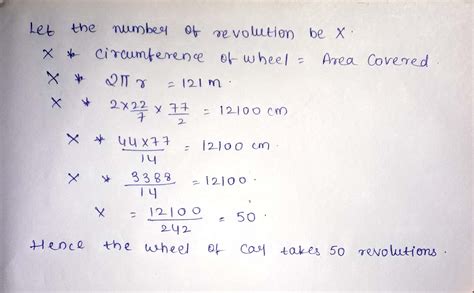 Let the number of revolution be X.
X * Circumference of wheel = Area Covered.
X * 2πr = 121 m.
X * 2×22/7 × 77/2 = 12100 cm
X * 44×77/14 = 12100 cm.
X * 3388/14 = 12100.
X = 12100/242 = 50.
Hence the wheel of car takes 50 revolutions.